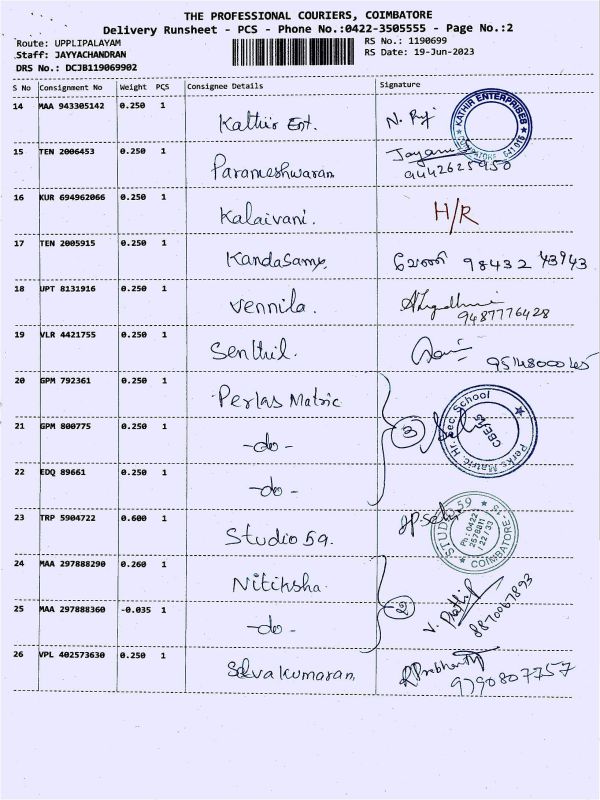 THE PROFESSIONAL COURIERS, COIMBATORE
Delivery Runsheet - PCS - Phone No.:0422-3505555 - Page No.:2
Route: UPPLIPALAYAM
Staff: JAYYACHANDRAN
DRS No.: DCJB119069902
RS No.: 1190699
RS Date: 19-Jun-2023
S No Consignment No Weight PCS Consignee Details Signature
14 MAA 943305142 0.250 1 Kathir Ent. N. KATHIR ENTERPRISES
15 TEN 2006453 0.250 1 Parameshwaran 9442625950
16 KUR 694962066 0.250 1 Kalaivani. H/R
17 TEN 2005915 0.250 1 Kandasamy, 98432 43943
18 UPT 8131916 0.250 1 Vennila. 9487776428
19 VLR 4421755 0.250 1 Senthil. 9514800045
20 GPM 792361 0.250 1 Perlas Matric
21 GPM 800775 0.250 1 -do- 3 Perks Matric. Hr. Sec. School CBE-15
22 EDQ 89661 0.250 1 -do-
23 TRP 5904722 0.600 1 Studio 59. STUDIO 59 COIMBATORE-15 Ph: 0422
24 MAA 297888290 0.260 1 Nitiksha
25 MAA 297888360 -0.035 1 -do- 2 V. 8870067893
26 VPL 402573630 0.250 1 Selvakumaran, 9790807757